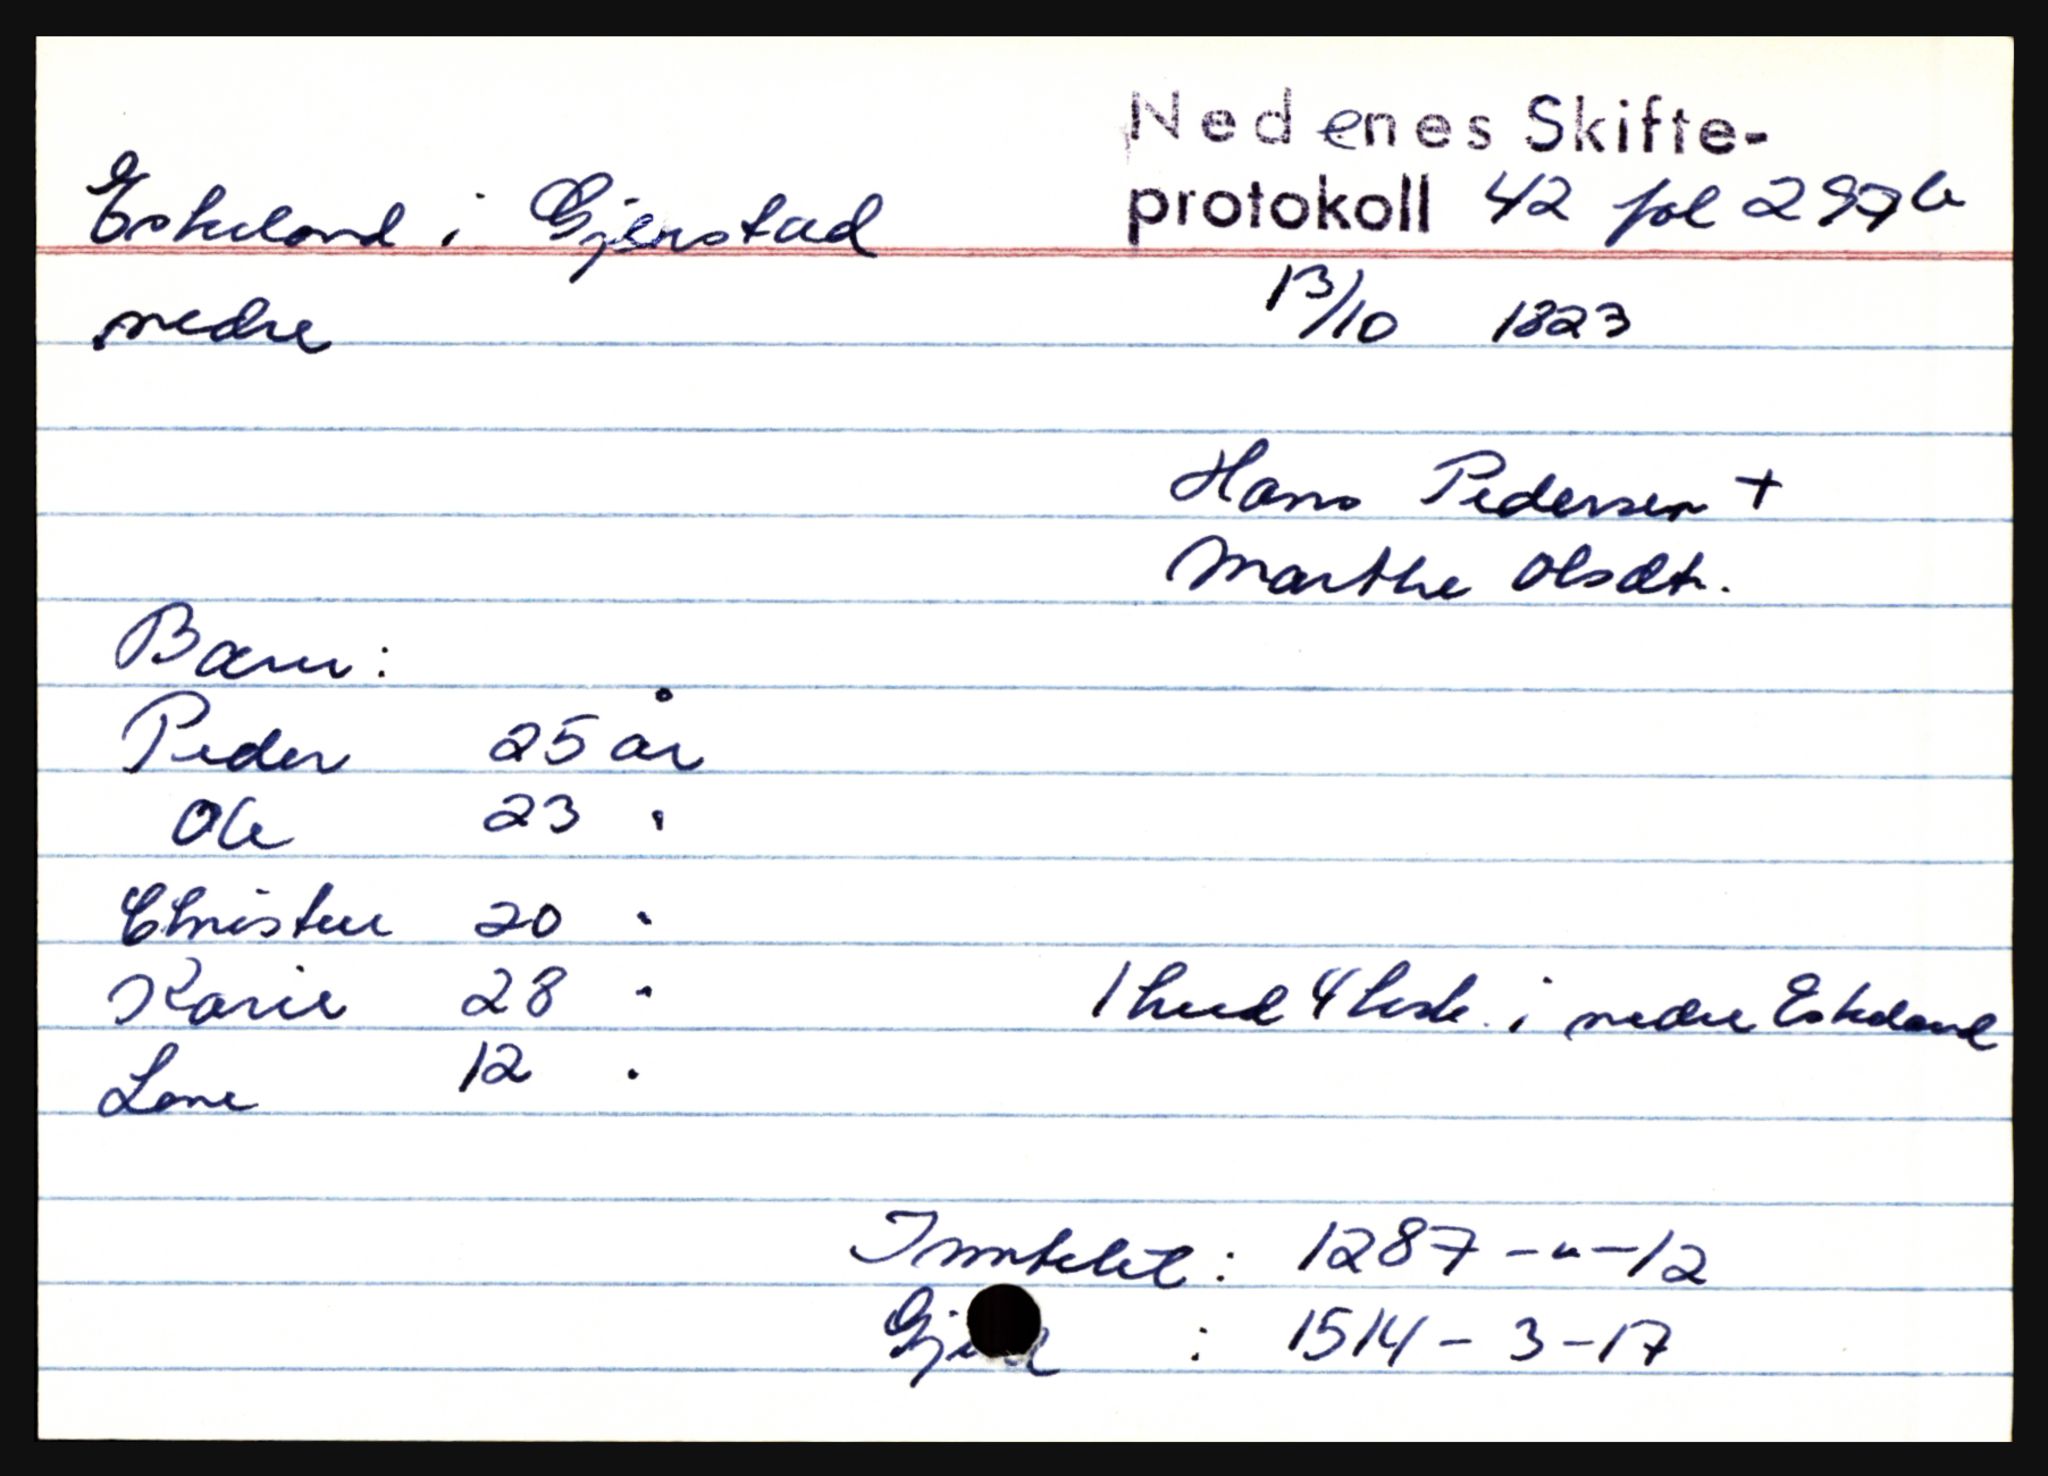 Nedenes Skifte-
Eskeland i Gjerstad protokoll 42 fol 297 b
nedre 13/10 1823
Hans Pedersen +
Marthe Olsdtr.
Barn:
Peder 25 år
Ole 23 "
Christen 20 "
Karie 28 " 1 hud 4 ksk. i nedre Eskeland
Lene 12 "
Inntekt: 1287 - " - 12
Gjeld : 1514 - 3 - 17